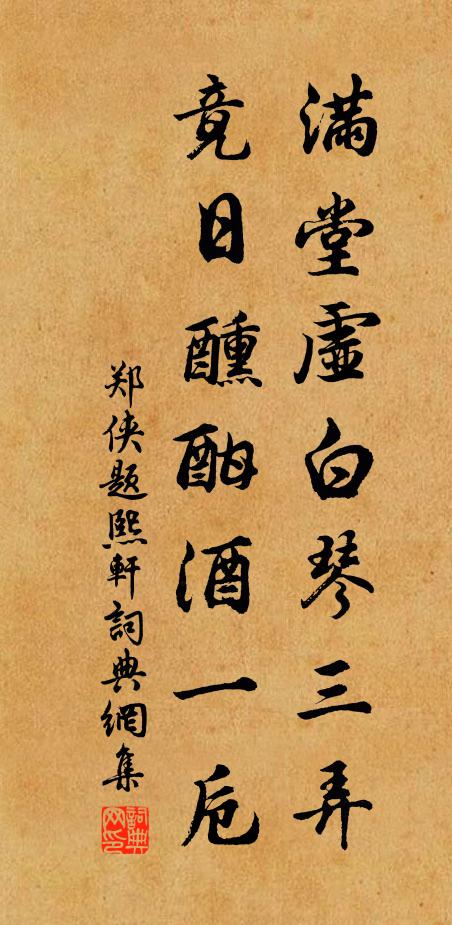 滿堂虛白琴三弄
竟日醺酣酒一卮
郑侠题熙軒詞典網集
詞典网印